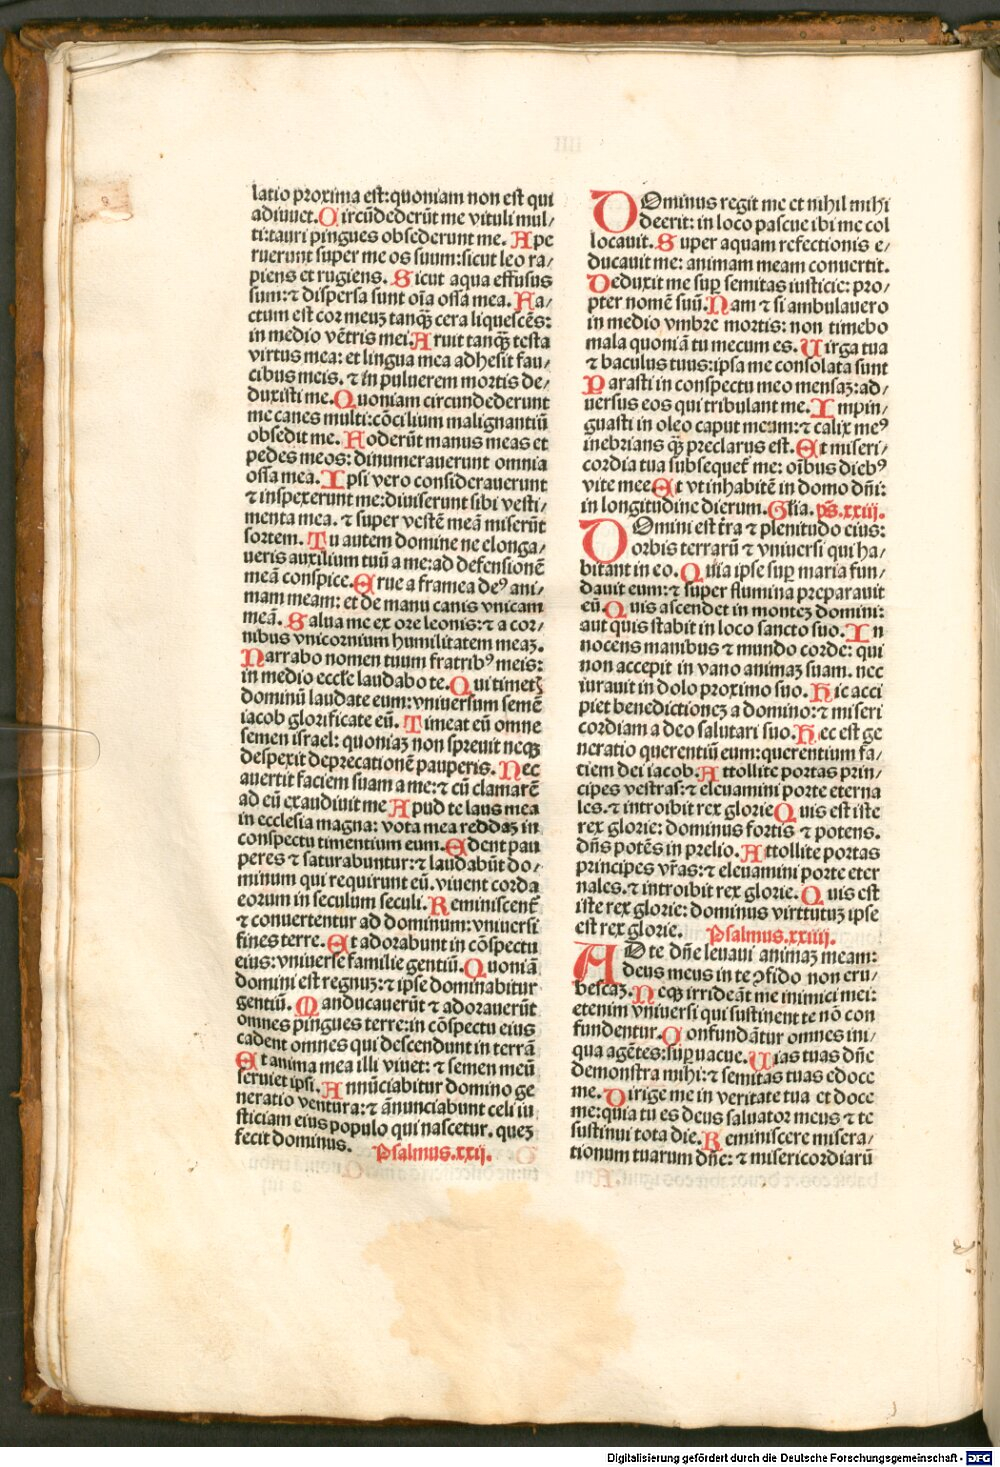 latio proxima est:quoniam non est qui
adiuuet.Circūdederūt me vituli mul/
ti:tauri pingues obsederunt me. Ape
ruerunt super me os suum:sicut leo ra/
piens et rugiens. Sicut aqua effusus
sum:⁊ dispersa sunt oīa ossa mea. Fa/
ctum est cor meuꝫ tanqȝ cera liquescēs:
in medio vētris mei.Aruit tanqȝ testa
virtus mea: et lingua mea adhesit fau/
cibus meis. ⁊ in puluerem mortis de/
duxisti me.Quoniam circundederunt
me canes multi:cōcilium malignantiū
obsedit me. Foderūt manus meas et
pedes meos: dinumerauerunt omnia
ossa mea.Ipsi vero considerauerunt
⁊ inspexerunt me:diuiserunt sibi vesti/
menta mea. ⁊ super vestē meā miserūt
sortem. Tu autem domine ne elonga/
ueris auxilium tuū a me:ad defensionē
meā conspice.Erue a framea deꝰ ani/
mam meam: et de manu canis vnicam
meā. Salua me ex ore leonis:⁊ a cor/
nibus vnicornium humilitatem meaꝫ.
Narrabo nomen tuum fratribꝰ meis:
in medio eccłe laudabo te.Qui timetꝭ
dominū laudate eum:vniuersum semē
iacob glorificate eū. Timeat eū omne
semen israel: quoniaꝫ non spreuit neqȝ
despexit deprecationē pauperis. Nec
auertit faciem suam a me:⁊ cū clamarē
ad eū exaudiuit me Apud te laus mea
in ecclesia magna: vota mea reddaꝫ in
conspectu timentium eum.Edent pau
peres ⁊ saturabuntur:⁊ laudabūt do/
minum qui requirunt eū. viuent corda
eorum in seculum seculi.Reminiscent᷑
⁊ conuertentur ad dominum:vniuersi
fines terre.Et adorabunt in cōspectu
eius:vniuerse familie gentiū.Quoniā
domini est regnuꝫ:⁊ ipse dominabitur
gentiū. Manducauerūt ⁊ adorauerūt
omnes pingues terre:in cōspectu eius
cadent omnes qui descendunt in terrā
Et anima mea illi viuet: ⁊ semen meū
seruiet ipsi.Annūciabitur domino ge
neratio ventura:⁊ ānunciabunt celi iu
sticiam eius populo qui nascetur. queꝫ
fecit dominus. Psalmus.xxij.
DOminus regit me et nihil mihi
deerit: in loco pascue ibi me col
locauit.Super aquam refectionis e/
ducauit me: animam meam conuertit.
Deduxit me suꝑ semitas iusticie: pro/
pter nomē suū.Nam ⁊ si ambulauero
in medio vmbre mortis: non timebo
mala quoniā tu mecum es.Uirga tua
⁊ baculus tuus:ipsa me consolata sunt
Parasti in conspectu meo mensaꝫ:ad/
uersus eos qui tribulant me.Impin/
guasti in oleo caput meum:⁊ calix meꝰ
inebrians qȝ preclarus est.Et miseri/
cordia tua subsequet᷑ me: oībus diebꝰ
vite mee Et vt inhabitē in domo dn̄i:
in longitudine dierum.Gl̄ia.ps̄.xxiij.
DOmini est t̄ra ⁊ plenitudo eius:
orbis terrarū ⁊ vniuersi qui ha/
bitant in eo.Quia ipse suꝑ maria fun/
dauit eum:⁊ super flumina preparauit
eū.Quis ascendet in monteꝫ domini:
aut quis stabit in loco sancto suo.In
nocens manibus ⁊ mundo corde: qui
non accepit in vano animaꝫ suam. nec
iurauit in dolo proximo suo.Hic acci
piet benedictioneꝫ a domino:⁊ miseri
cordiam a deo salutari suo.Hec est ge
neratio querentiū eum:querentium fa/
ciem dei iacob.Attollite portas prin/
cipes vestras:⁊ eleuamini porte eterna
les.⁊ introibit rex glorie Quis est iste
rex glorie: dominus fortis ⁊ potens.
dn̄s potēs in prelio. Attollite portas
principes vr̄as:⁊ eleuamini porte eter
nales.⁊ introibit rex glorie.Quis est
iste rex glorie: dominus virttutuꝫ ipse
est rex glorie. Psalmus.xxiiij.
AD te dn̄e leuaui animaꝫ meam:
deus meus in te ꝯfido non eru/
bescaꝫ.Neqȝ irrideāt me inimici mei:
etenim vniuersi qui sustinent te nō con
fundentur.Confundātur omnes ini/
qua agētes:suꝑuacue.Uias tuas dn̄e
demonstra mihi:⁊ semitas tuas edoce
me.Dirige me in veritate tua et doce
me:quia tu es deus saluator meus ⁊ te
sustinui tota die.Reminiscere misera/
tionum tuarum dn̄e: ⁊ misericordiarū
Digitalisierung gefördert durch die Deutsche Forschungsgemeinschaft - DFG